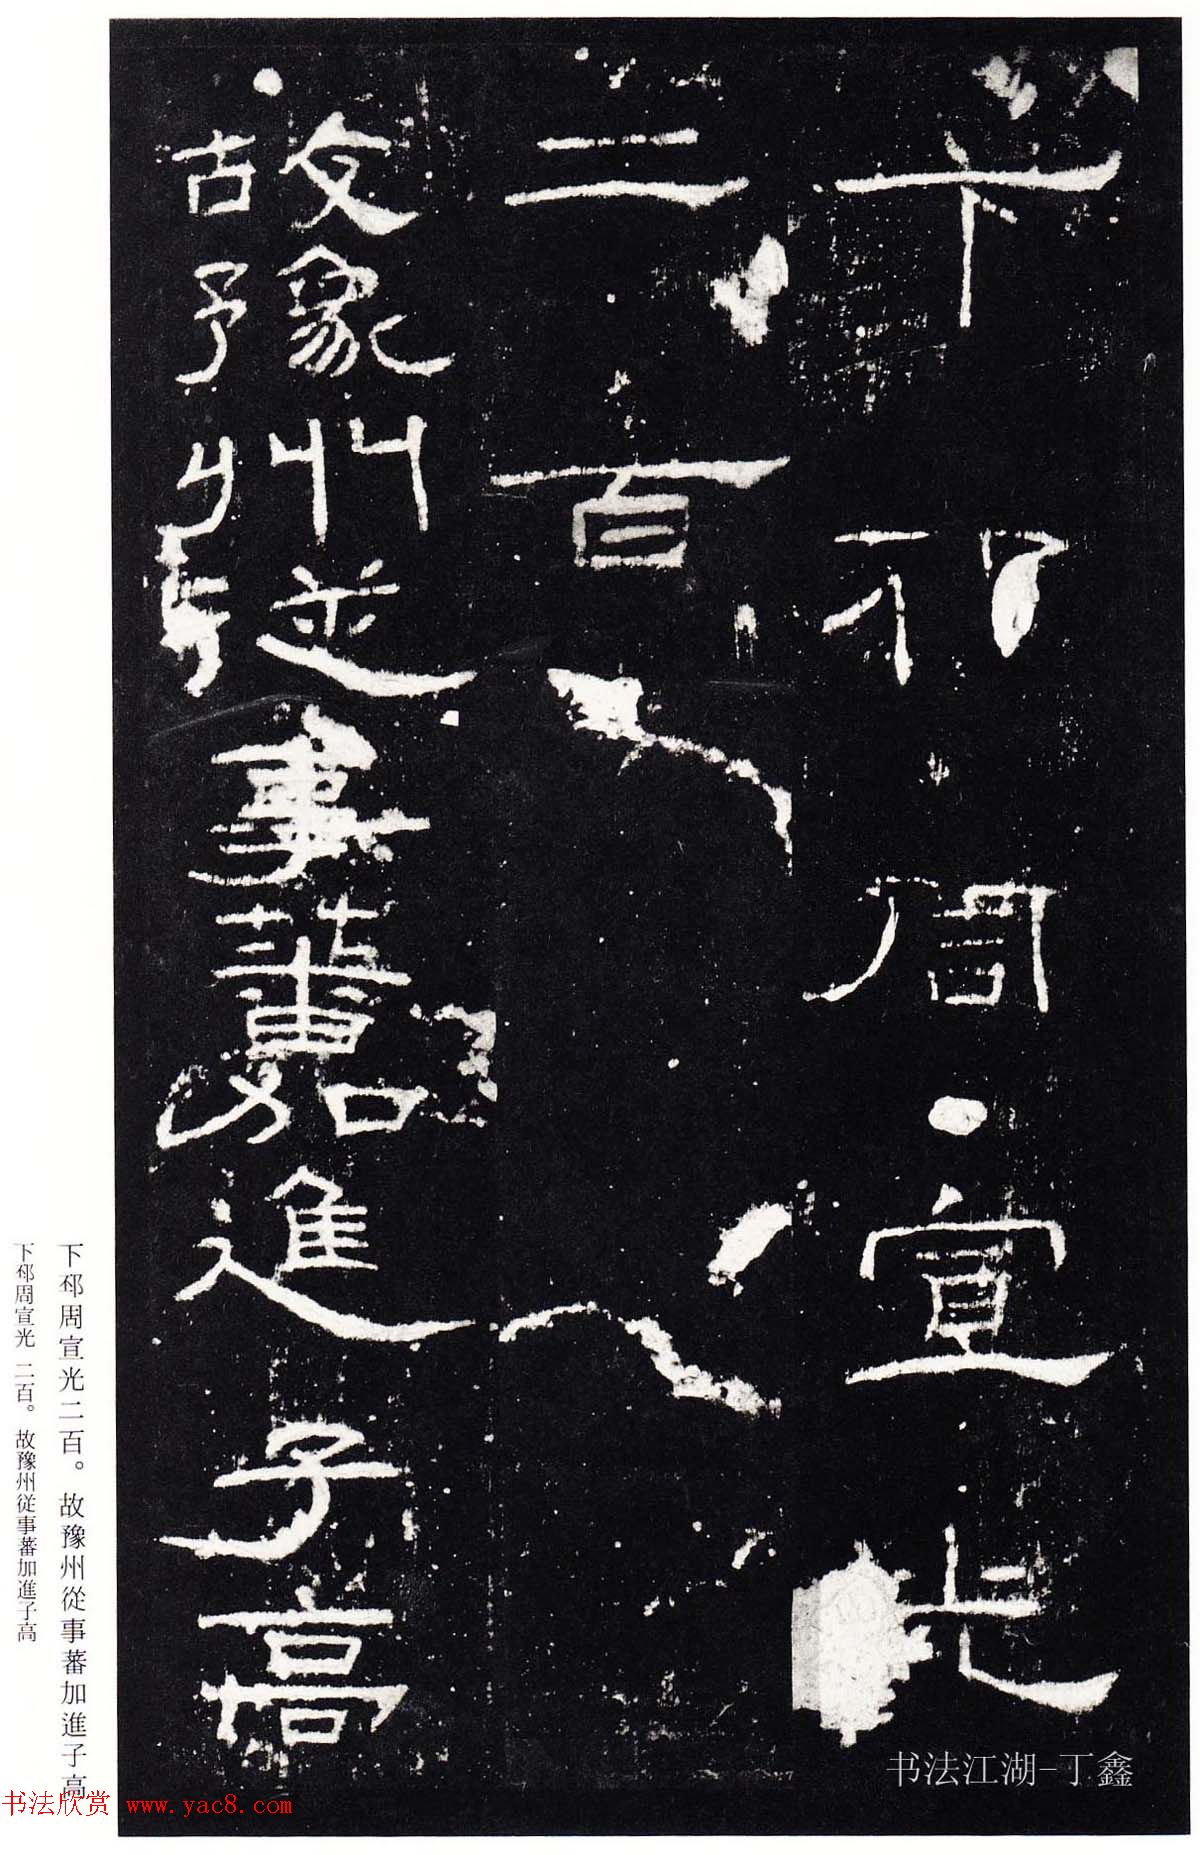 下邳周宣光
二百
故豫州從事蕃加進子高
下邳周宣光二百。故豫州從事蕃加進子高
下邳周宣光 二百。故豫州従事蕃加進子高
书法江湖-丁鑫
书法欣赏 www.yac8.com